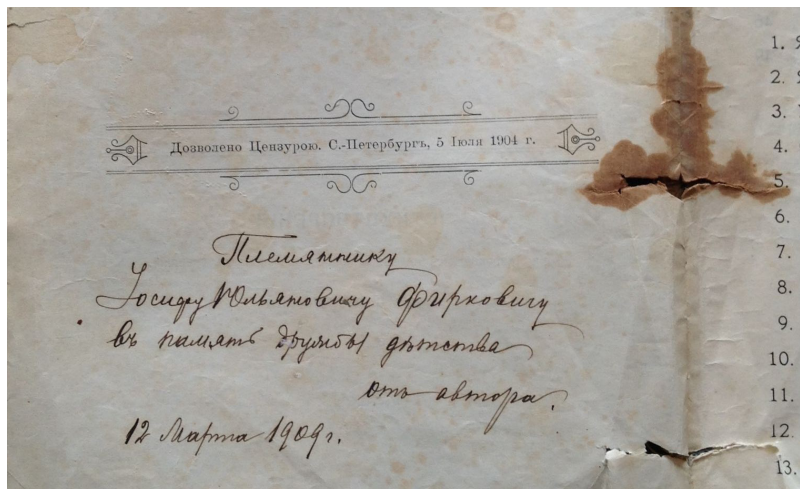 Дозволено Цензурою. С.-Петербургъ, 5 Іюля 1904 г.
Племяннику
Іосифу Юльяновичу Фирковичу
въ память дружбы дѣтства
отъ автора.
12 Марта 1909 г.
1.
2.
3.
4.
5.
6.
7.
8.
9.
10.
11.
12.
13.